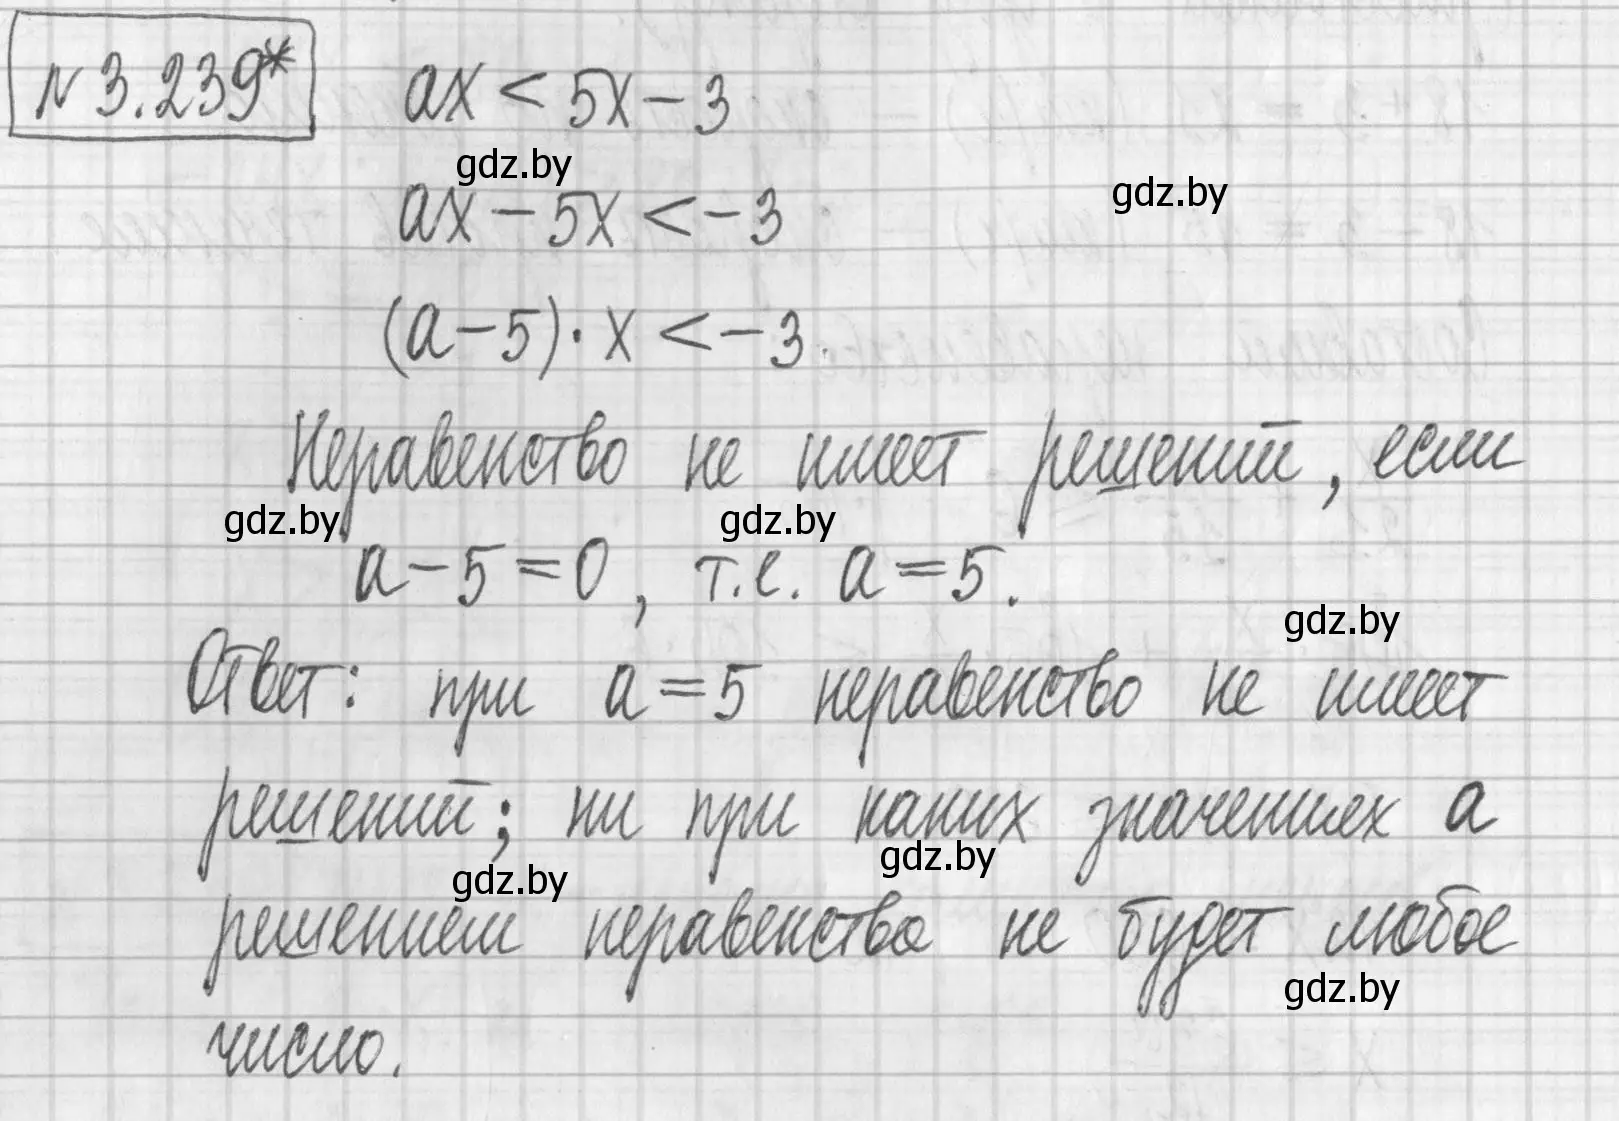 № 3.239*
ax < 5x - 3
gdz.by
gdz.by
ax - 5x < -3
(a - 5) · x < -3.
Неравенство не имеет решений, если
gdz.by
gdz.by
a - 5 = 0, т.е. a = 5.
gdz.by
Ответ: при a = 5 неравенство не имеет
решений; ни при каких значениях a
gdz.by
gdz.by
решением неравенства не будет любое
gdz.by
число.